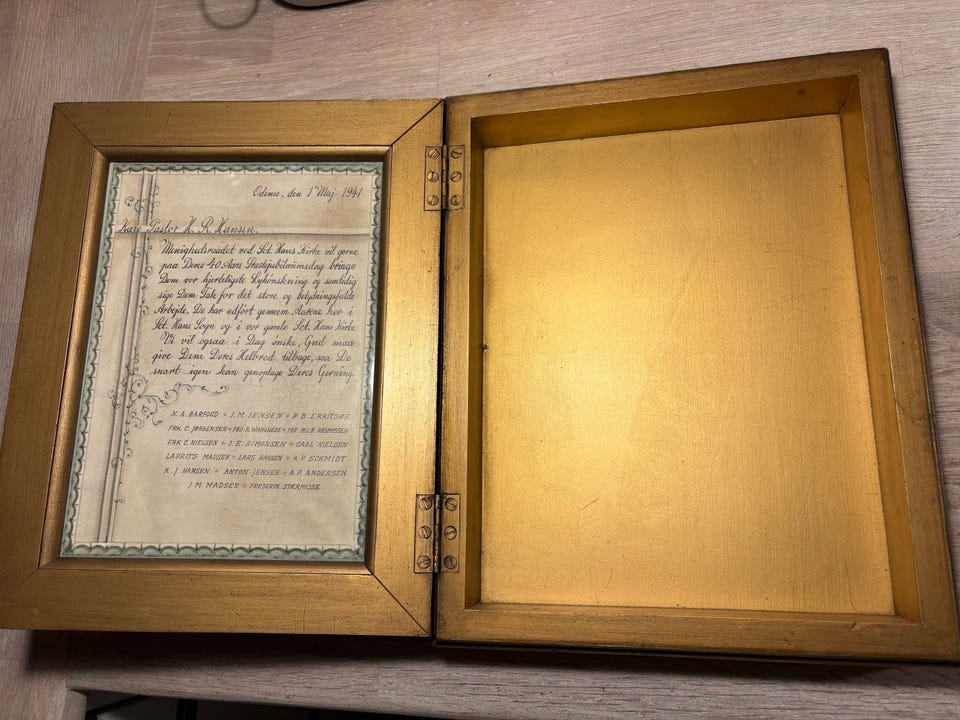 Odense, den 1' Maj 1941
Kære Pastor H. R. Hansen.
Menighedsraadet ved Sct. Hans Kirke vil gerne
paa Deres 40 Aars Præstejubilæumsdag bringe
Dem vor hjerteligste Lykønskning og samtidig
sige Dem Tak for det store og betydningsfulde
Arbejde, De har udført gennem Aarene her i
Sct. Hans Sogn og i vor gamle Sct. Hans Kirke.
Vi vil ogsaa i Dag ønske, Gud maa
give Dem Deres Helbred tilbage, saa De
snart igen kan genoptage Deres Gerning.
N. A. BARFOED * J. M. JENSEN * P. B. ERRITSØE
FRK. C. JØRGENSEN * FRU K. WARGHEDE * FRU M. L. K. RASMUSSEN
FRK C. NIELSEN * J. E. SIMONSEN * CARL NIELSEN
LAURITS MADSEN * LARS HANSEN * A. P. SCHMIDT
K. J. HANSEN * ANTON JENSEN * A. P. ANDERSEN
J. M. MADSEN * FREDERIK STÆRMOSE